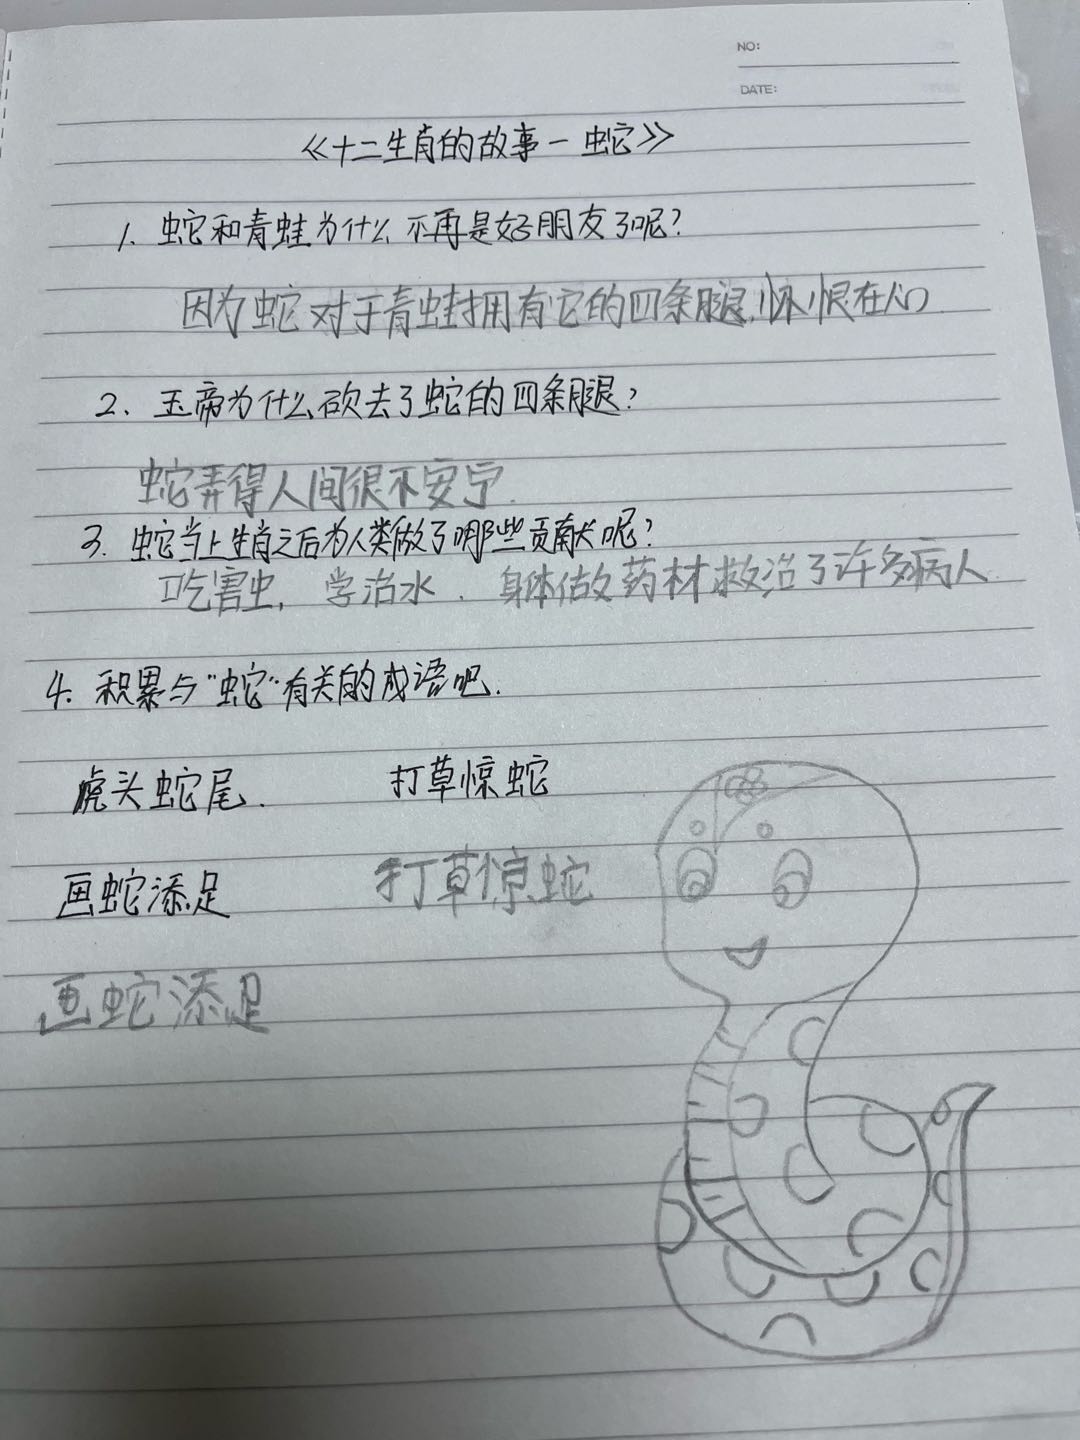 NO:
DATE:
《十二生肖的故事一蛇》
1、蛇和青蛙为什么不再是好朋友了呢?
因为蛇对于青蛙拥有它的四条腿,怀恨在心
2、玉帝为什么砍去了蛇的四条腿?
蛇弄得人间很不安宁.
3、蛇当上生肖之后为人类做了哪些贡献呢?
吃害虫, 学治水. 身体做药材救治了许多病人.
4. 积累与"蛇"有关的成语吧.
虎头蛇尾. 打草惊蛇
画蛇添足 打草惊蛇
画蛇添足